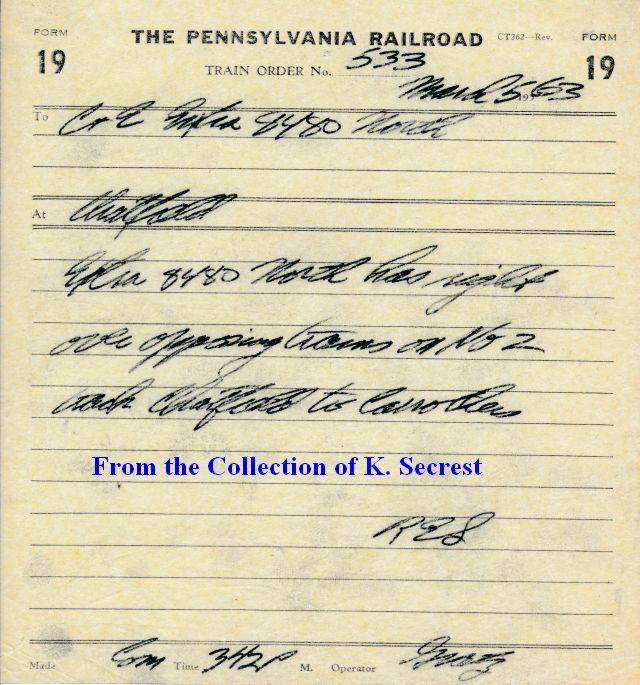 FORM 19 THE PENNSYLVANIA RAILROAD CT262—Rev. FORM 19
TRAIN ORDER No. 533
March 5 1963
To C&E Extra 8480 North
At Chatfield
Extra 8480 North has right
over opposing trains on No 2
track Chatfield to Carrothers
From the Collection of K. Secrest
RES
Made Com Time 342P M. Operator